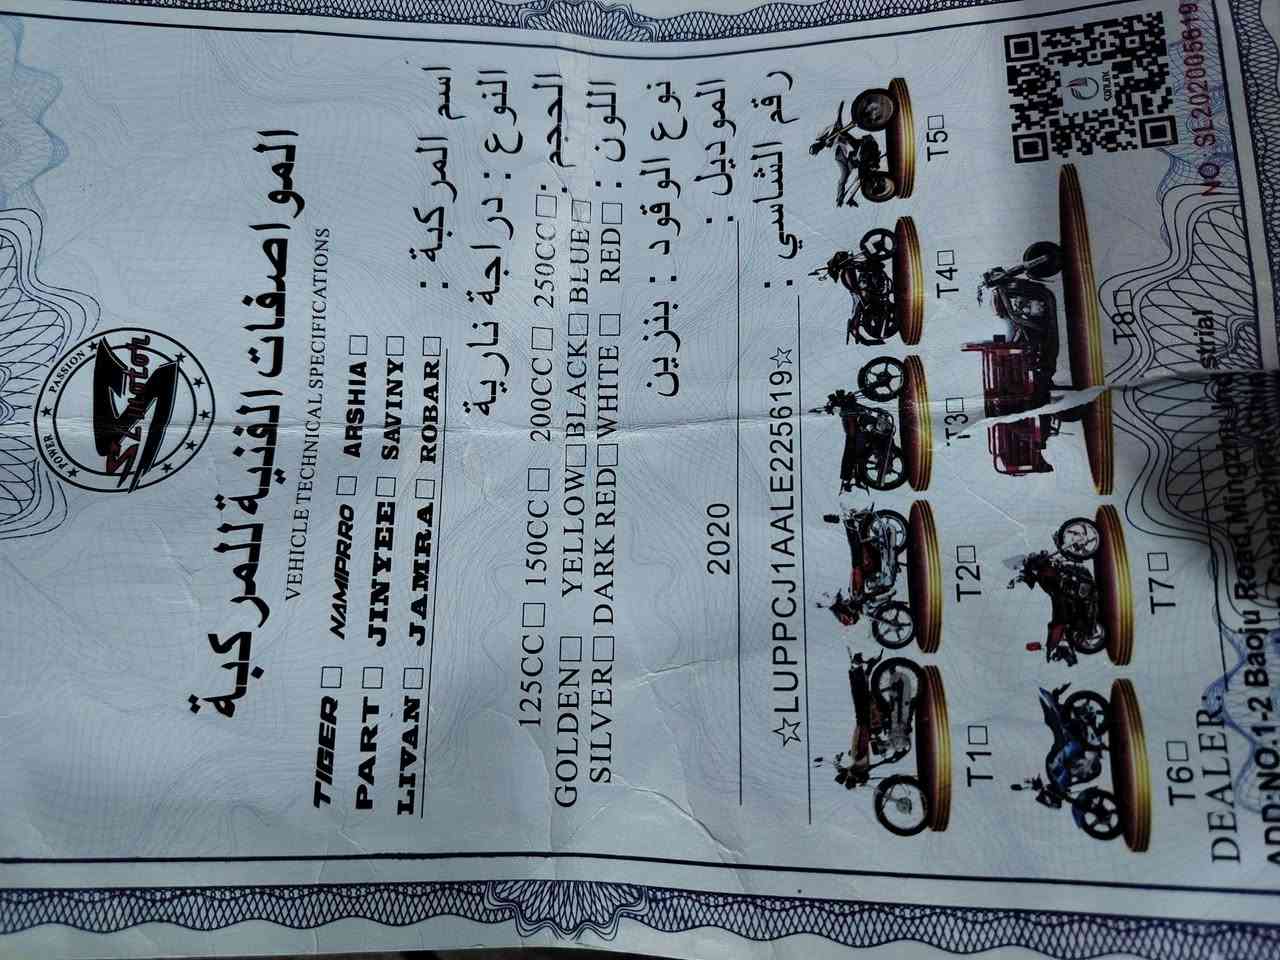 POWER PASSION
SL motor
المواصفات الفنية للمركبة
VEHICLE TECHNICAL SPECIFICATIONS
TIGER□ NAMIPRRO□ ARSHIA□
PART□ JINYEE□ SAVINY□
LIVAN□ JAMRA□ ROBAR□ اسم المركبة :
النوع : دراجة نارية
125CC□ 150CC□ 200CC□ 250CC□ الحجم :
GOLDEN□ YELLOW□ BLACK□ BLUE□
SILVER□ DARK RED□ WHITE□ RED□ اللون :
نوع الوقود : بنزين
2020 الموديل :
☆LUPPCJ1AALE225619☆ رقم الشاسي :
T1□ T2□ T3□ T4□ T5□
T6□ T7□ T8□
SL
NO. SL202005619
DEALER:
ADD:NO.1-2 Baoju Road,Mingzhu strial